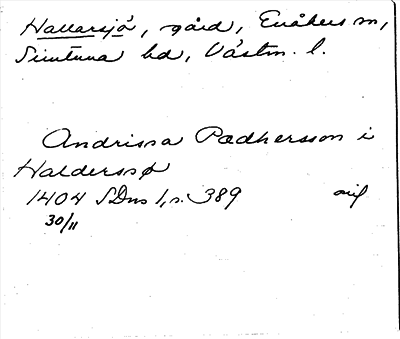 Hallarsjö, gård, Enåkers sn,
Simtuna hd, Västm. l.
Andrissa Padhersson i
Halderssø
1404 SDns 1, s. 389
30/11